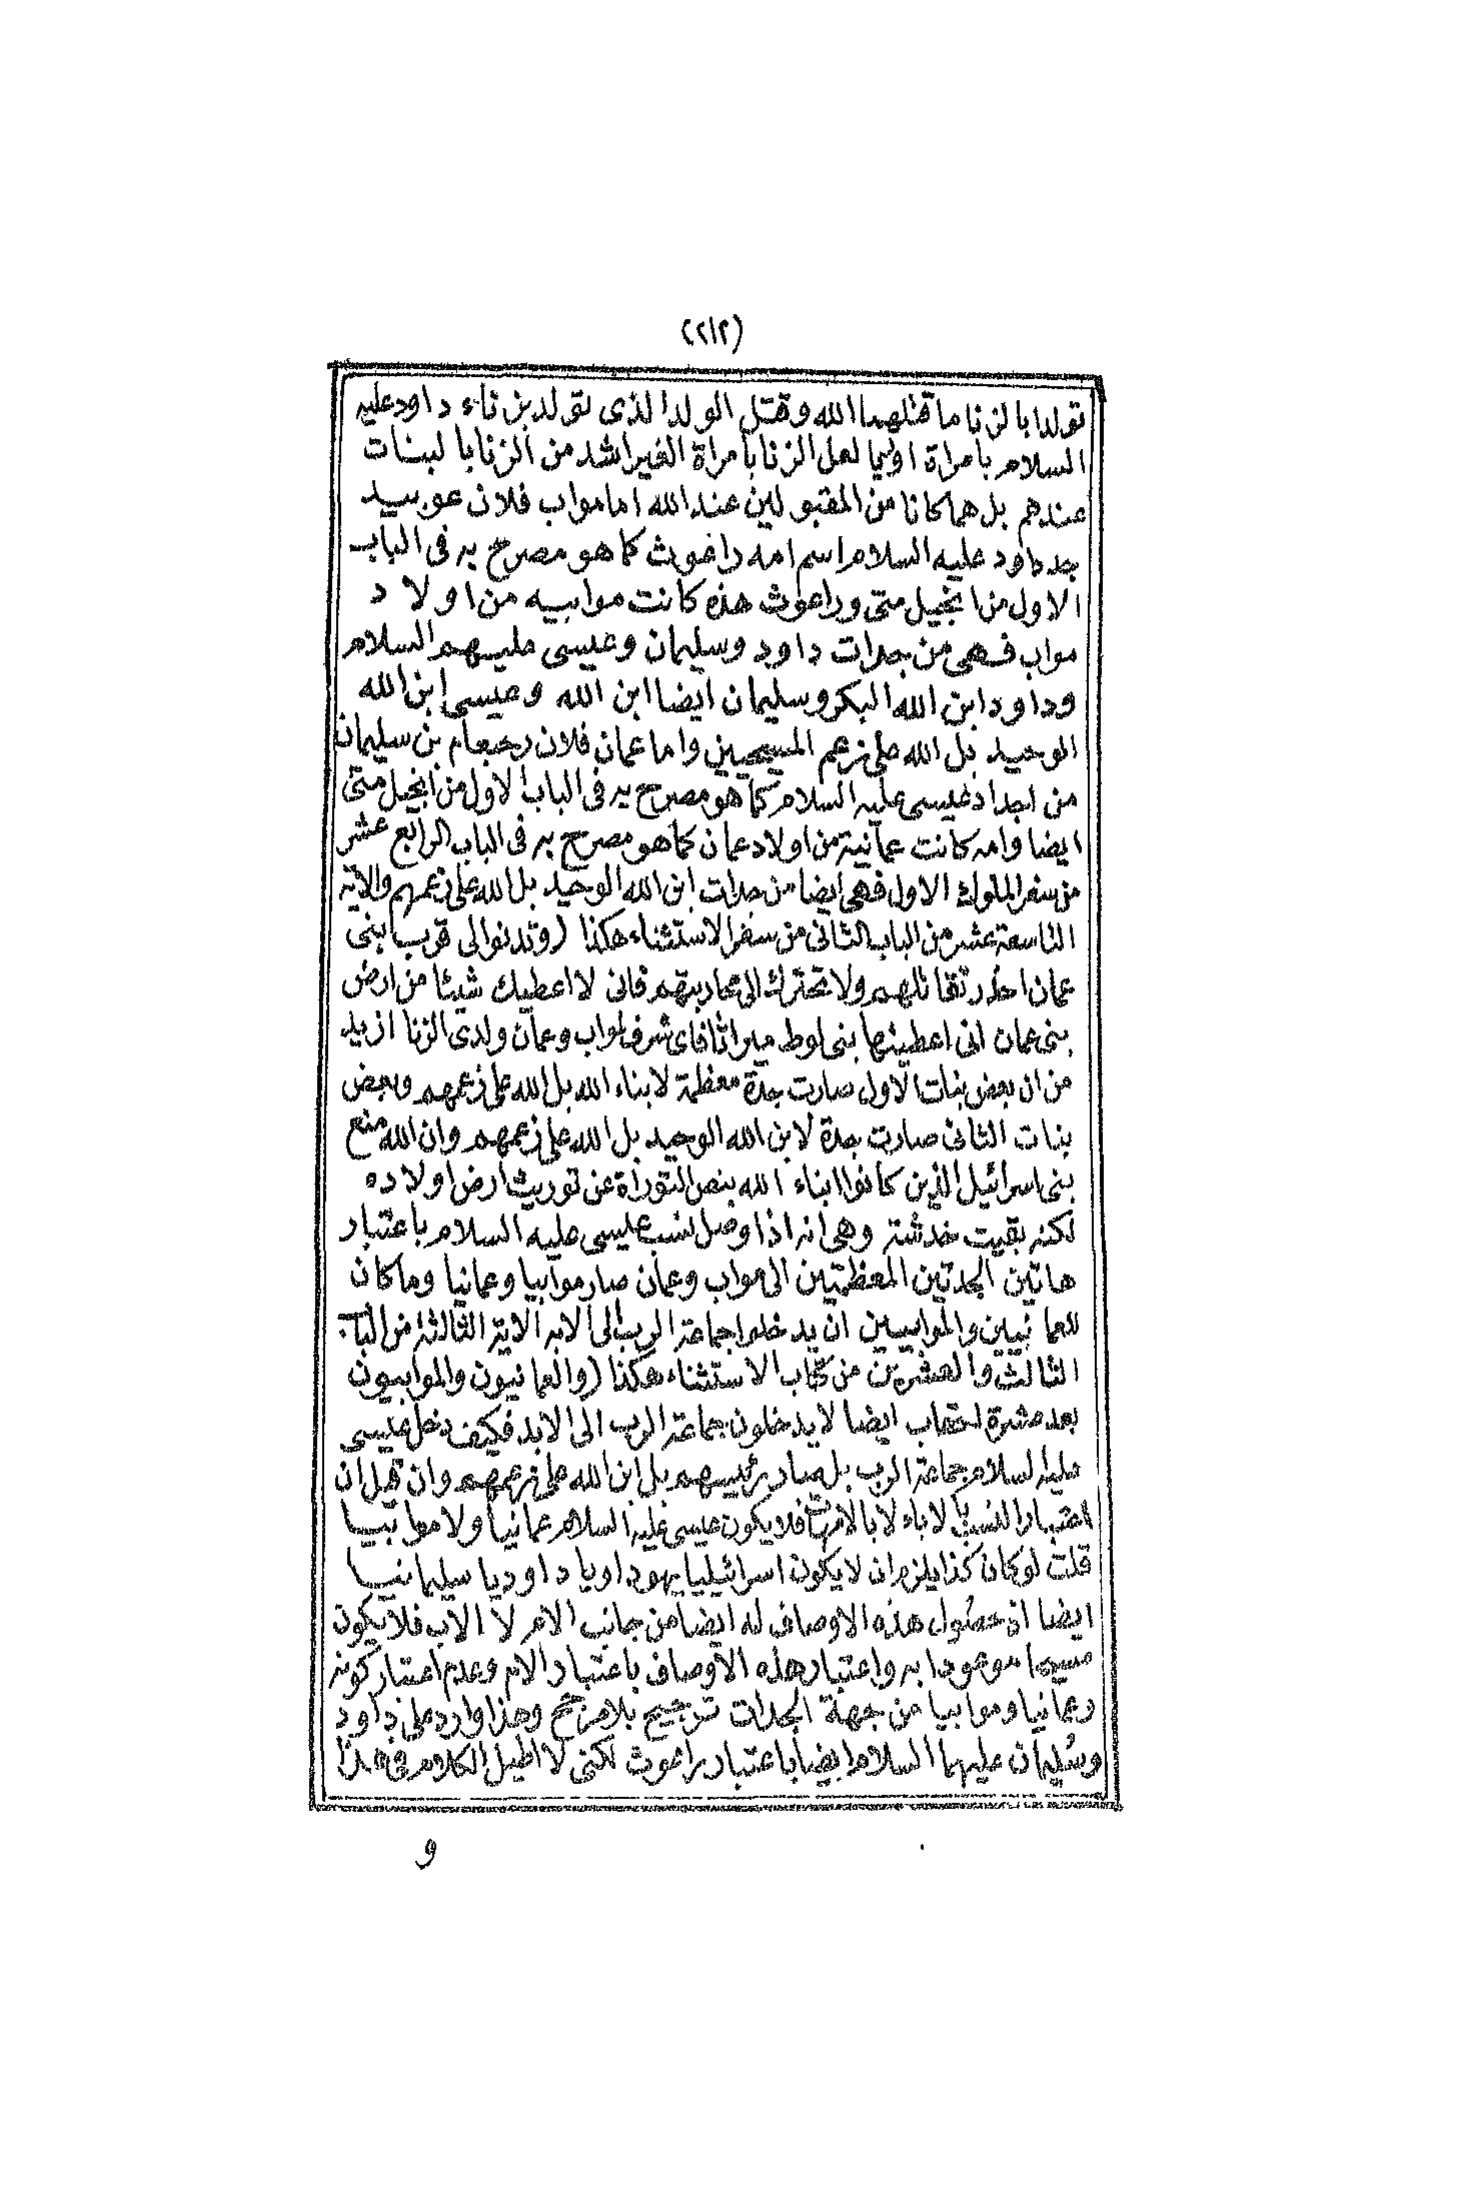 (٢١٢)
تولدا بالزنا ما قتلهما الله وقتل الولد الذى تولد بزناء داود عليه
السلام بامراة اوريا لعل الزنا بامراة الغير اشد من الزنا بالبنات
عندهم بل هما كانا من المقبولين عند الله اما مواب فلان عوبيد
جد داود عليه السلام اسم امه راعوث كما هو مصرح به فى الباب
الاول من انجيل متى وراعوث هذه كانت موابيه من اولاد
مواب فهى من جدات داود وسليمان وعيسى عليهم السلام
وداود ابن الله البكر وسليمان ايضا ابن الله وعيسى ابن الله
الوحيد بل الله على زعم المسيحيين واما عمان فلان رحبعام بن سليمان
من اجداد عيسى عليه السلام كما هو مصرح به فى الباب الاول من انجيل متى
ايضا وامه كانت عمانية من اولاد عمان كما هو مصرح به فى الباب الرابع عشر
من سفر الملوك الاول فهى ايضا من جدات ابن الله الوحيد بل الله على زعمهم والاية
التاسعة عشر من الباب الثانى من سفر الاستثناء هكذا (وتدنوا لى قرب بنى
عمان احذر تقاتلهم ولا تحترك الى محاربتهم فانى لا اعطيك شيئا من ارض
بنى عمان انى اعطيتها بنى لوط ميراثا فاى شرف لمواب وعمان ولدى الزنا ازيد
من ان بعض بنات الاول صارت جدة معظمة لابناء الله بل الله على زعمهم وبعض
بنات الثانى صارت جدة لابن الله الوحيد بل الله على زعمهم وان الله منع
بنى اسرائيل الذين كانوا ابناء الله بنص التوراة عن توريث ارض اولاده
لكنه بقيت خدشة وهى انه اذا وصل نسب عيسى عليه السلام باعتبار
هاتين الجدتين المعظمتين الى مواب وعمان صار موابيا وعمانيا وما كان
للعمانيين والموابيين ان يدخلوا جماعة الرب الى الابد الاية الثالثة من الباب
الثالث والعشرين من كتاب الاستثناء هكذا (والعمانيون والموابيون
بعد عشرة احقاب ايضا لا يدخلون جماعة الرب الى الابد فكيف دخل عيسى
عليه السلام جماعة الرب بل صار رئيسهم بل ابن الله على زعمهم وان قيل ان
اعتبار النسب بالاباء لا بالامهات فلا يكون عيسى عليه السلام عمانيا ولا موابيا
قلت لو كان كذا يلزم ان لا يكون اسرائيليا يهوداويا داوديا سليمانيا
ايضا اذ حصول هذه الاوصاف له ايضا من جانب الام لا الاب فلا يكون
مسيحا موعودا به واعتبار هذه الاوصاف باعتبار الام وعدم اعتبار كونه
عمانيا وموابيا من جهة الجدات ترجيح بلا مرجح وهذا وارد على داود
وسليمان عليهما السلام ايضا باعتبار راعوث لكنى لا اطيل الكلام فى هذا
و